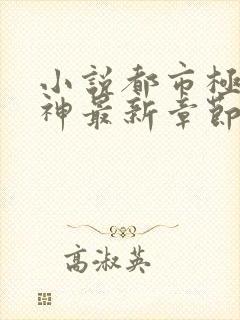 小說都市極
神最新章節
高淑英